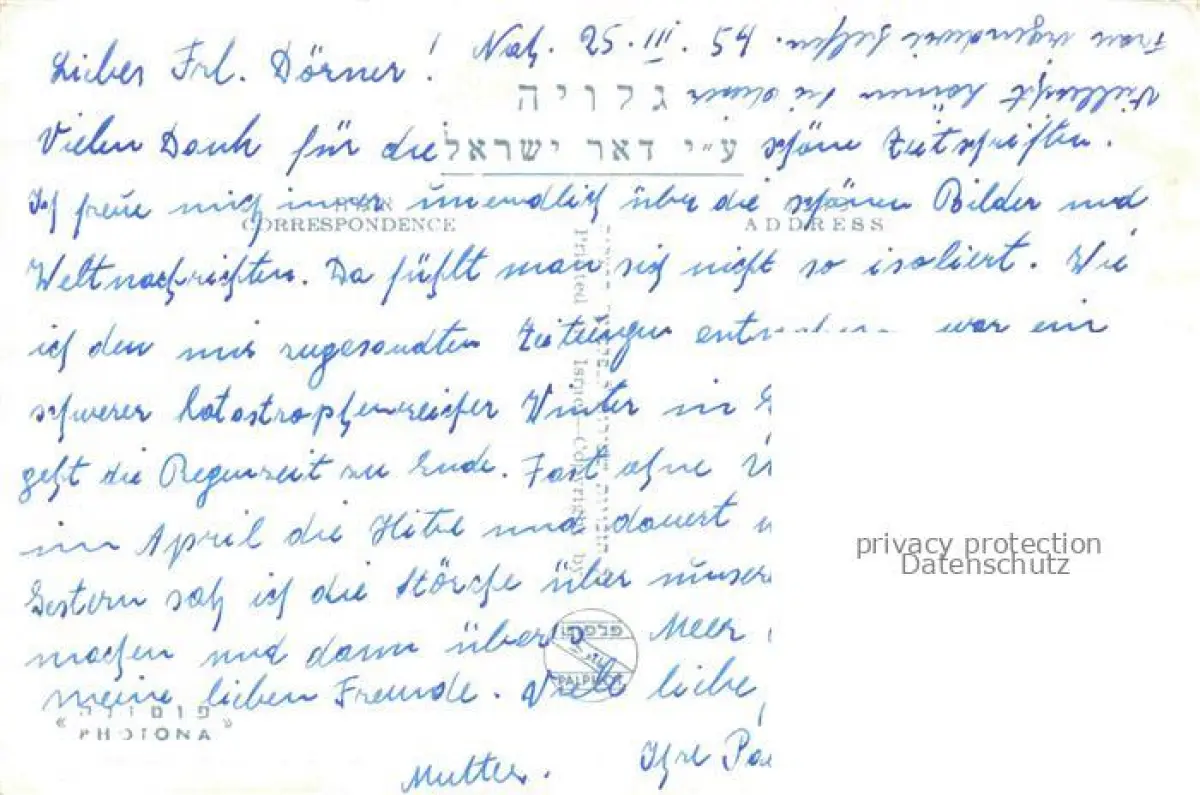 Liebes Frl. Dörner! Nah. 25.III.54.
Vielleicht können Sie dieser
Frau irgendwie helfen.
גלויה
ע״י דאר ישראל
Vielen Dank für die schöne Zeitschriften.
Ich freue mich immer unendlich über die schönen Bilder und
CORRESPONDENCE
ADDRESS
Weltnachrichten. Da fühlt man sich nicht so isoliert. Wie
ich den mir zugesandten Zeitungen war ein
schwerer katastrophenreicher Winter in
geht die Regenzeit zu Ende. Fast ohne
im April die Hitze und dauert
Gestern sah ich die Störche über unsere
machen und dann übers Meer
meine lieben Freunde. Viele liebe
Mutter. Ihre
Printed in Israel - Copyright by
פלפוט
PALPHOT
פוטונה
"PHOTONA"
privacy protection
Datenschutz